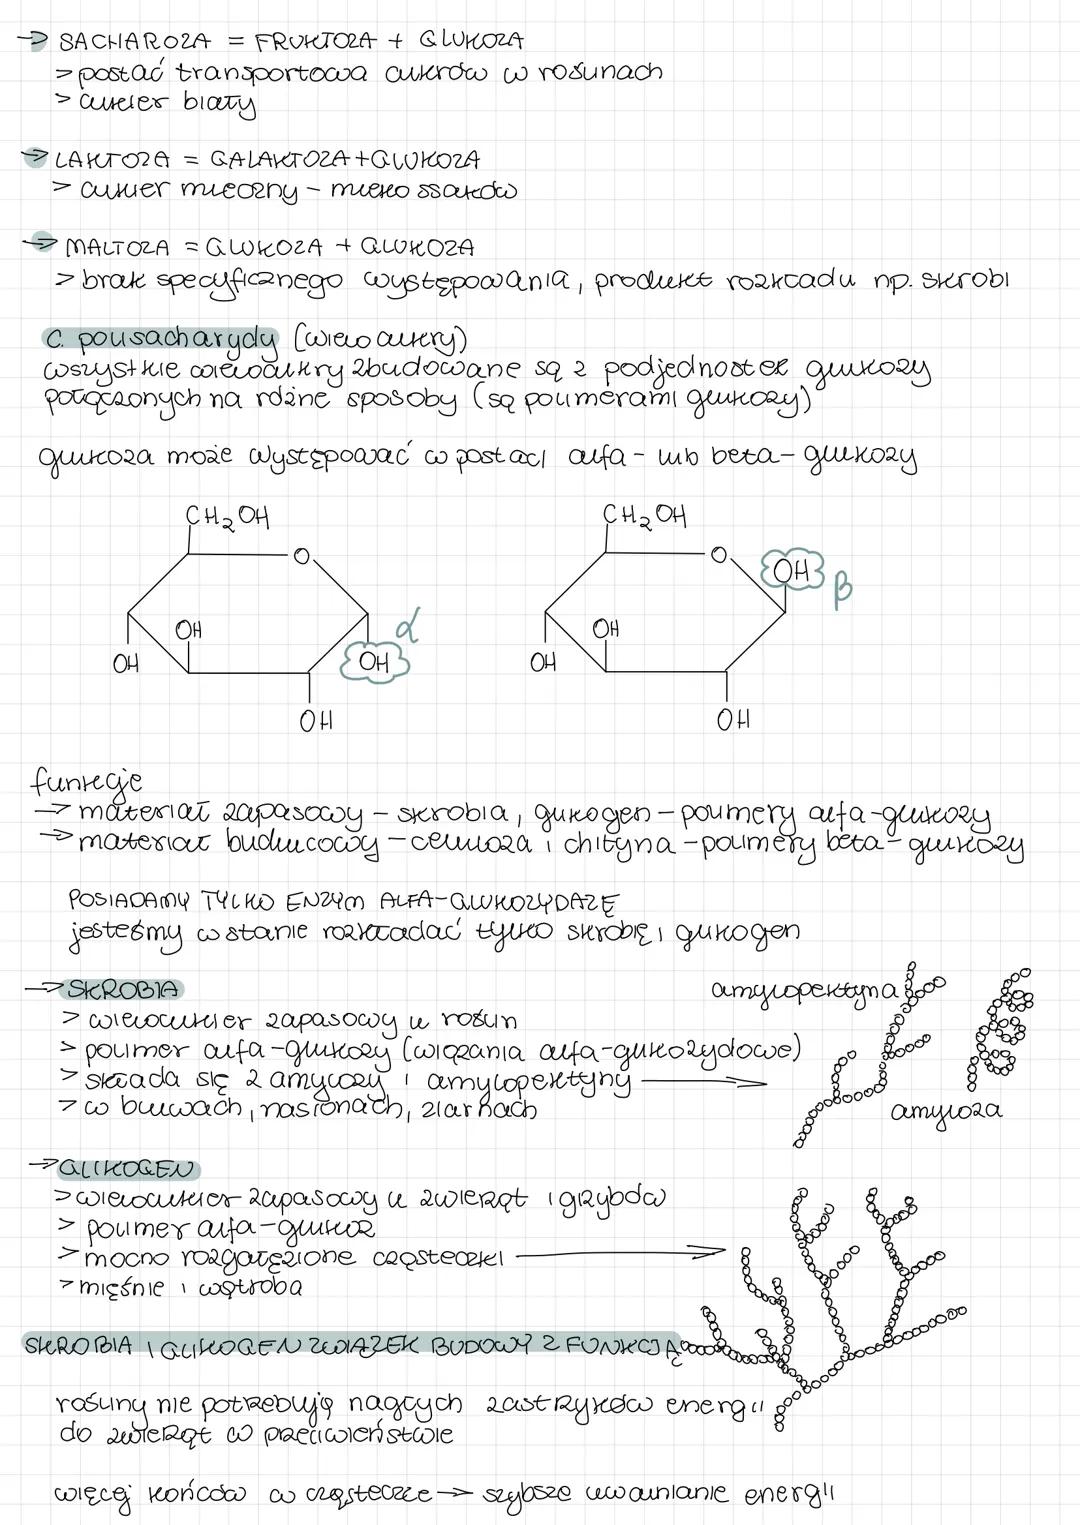 → SACHAROZA = FRUKTOZA + GLUKOZA
> postać transportowa cukrów w roślinach
> cukier biały
→ LAKTOZA = GALAKTOZA + GLUKOZA
> cukier mleczny - mleko ssaków
→ MALTOZA = GLUKOZA + GLUKOZA
> brak specyficznego występowania, produkt rozkładu np. skrobi
c. polisacharydy (wielocukry)
wszystkie wielocukry zbudowane są z podjednostek glukozy
połączonych na różne sposoby (są polimerami glukozy)
glukoza może występować w postaci alfa- lub beta-glukozy
CH₂OH CH₂OH
O O OH β
OH α OH
OH OH OH
OH OH
funkcje
→ materiał zapasowy - skrobia, glikogen - polimery alfa-glukozy
→ materiał budulcowy - celuloza i chityna - polimery beta-glukozy
POSIADAMY TYLKO ENZYM ALFA-GLUKOZYDAZĘ
jesteśmy w stanie rozkładać tylko skrobię i glikogen
→ SKROBIA
amylopektyna
> wielocukier zapasowy u roślin
> polimer alfa-glukozy (wiązania alfa-glikozydowe)
> składa się z amylozy i amylopektyny →
> w bulwach, nasionach, ziarnach
amyloza
→ GLIKOGEN
> wielocukier zapasowy u zwierząt i grzybów
> polimer alfa-glukoz
> mocno rozgałęzione cząsteczki →
> mięśnie i wątroba
SKROBIA I GLIKOGEN ZWIĄZEK BUDOWY Z FUNKCJĄ
rośliny nie potrzebują nagłych zastrzyków energii
do zwierząt w przeciwieństwie
więcej końców w cząsteczce → szybsze uwalnianie energii